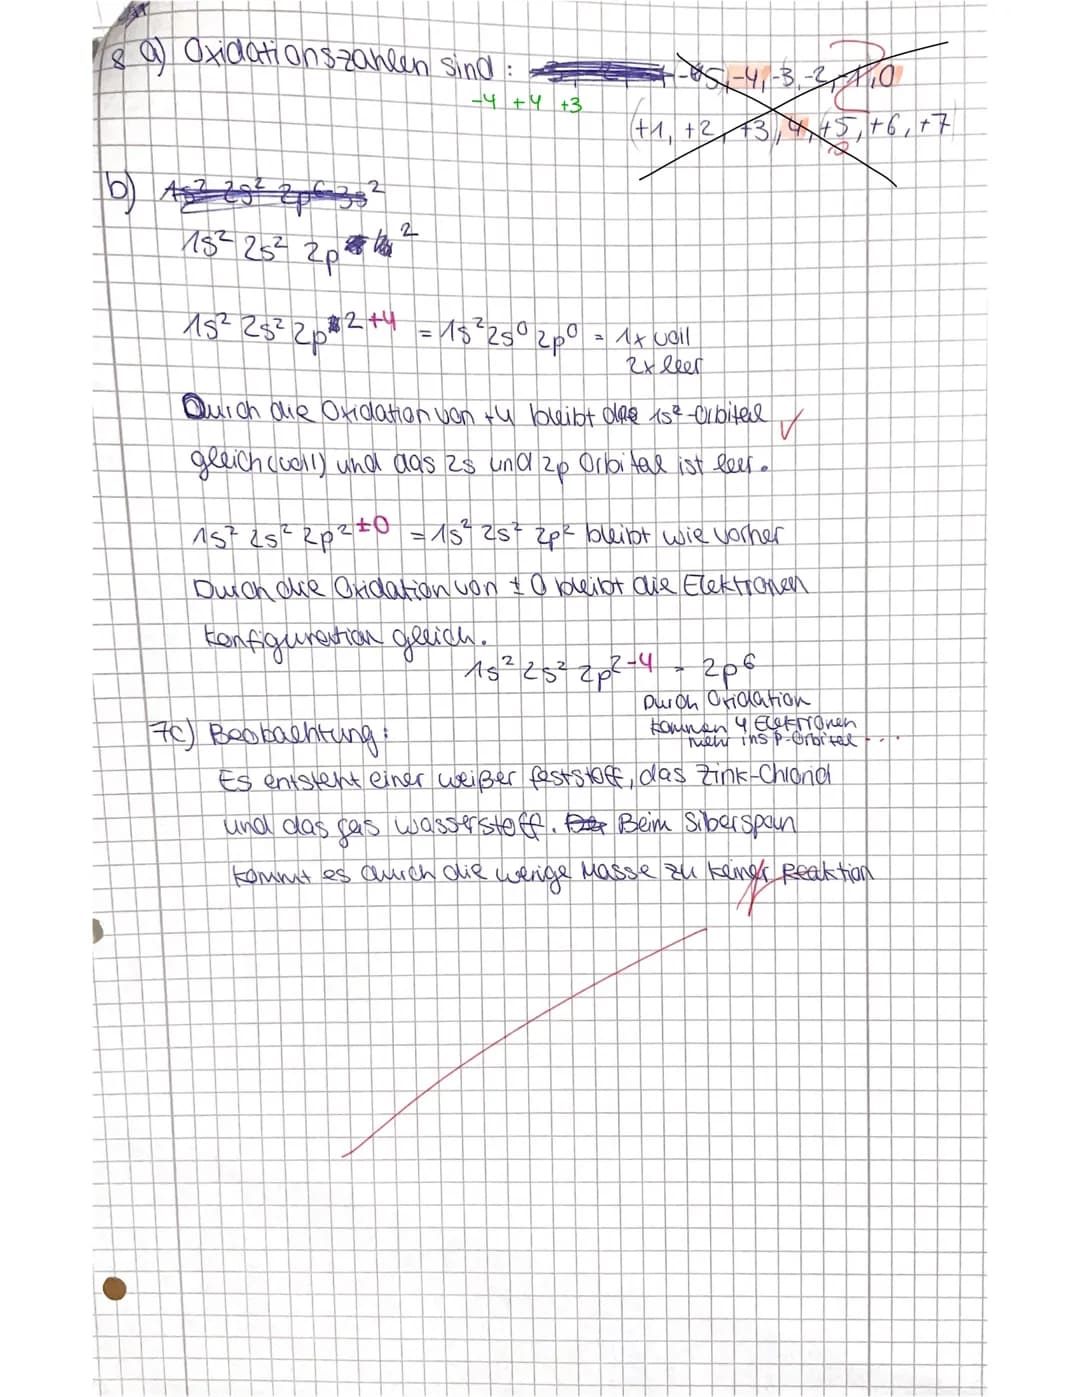 8 a) Oxidationszahlen sind : -5, -4, -3, -2, -1, 0
-4 +4 +3
(+1, +2, +3, 4, +5, +6, +7
b) 1s² 2s² 2p⁶ 3s²
1s² 2s² 2p ²
1s² 2s² 2p² ⁺⁴ = 1s² 2s⁰ 2p⁰ = 1x voll
2x leer
Durch die Oxidation von +4 bleibt das 1s²-Orbital
gleich (voll) und das 2s und 2p Orbital ist leer.
1s² 2s² 2p² ±⁰ = 1s² 2s² 2p² bleibt wie vorher
Durch die Oxidation von ± 0 bleibt die Elektronen
Konfiguration gleich.
1s² 2s² 2p²⁻⁴ = 2p⁶
Durch Oxidation
kommen 4 Elektronen
mehr ins p-Orbital ...
7c) Beobachtung:
Es entsteht einer weißer feststoff, das Zink-Chlorid
und das gas wasserstoff. Der Beim Silberspan
kommt es durch die wenige Masse zu keiner Reaktion